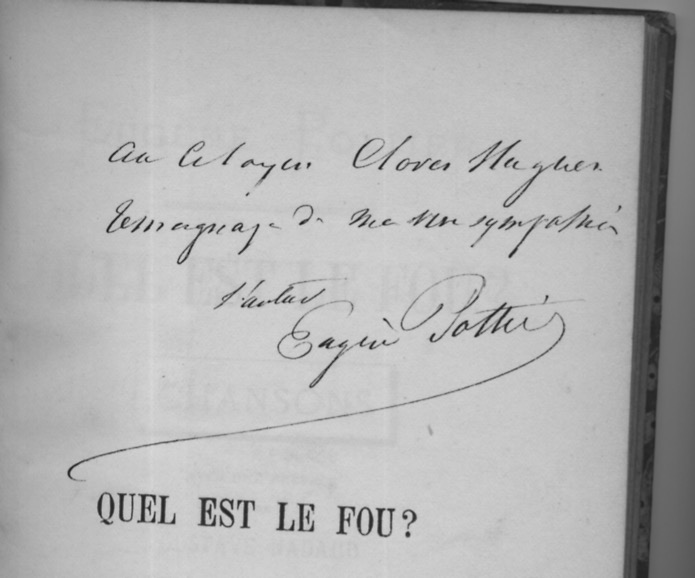 Au Citoyen Clovis Hugues
témoignage de ma vive sympathie
l'auteur
Eugène Pottier
QUEL EST LE FOU?